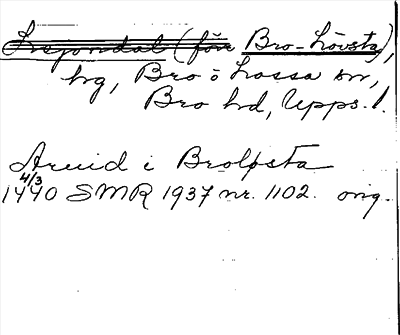 (för Bro-Lövsta),
hg, Bro o Lossa sn,
Bro hd, Upps. l.
Arvid i Broløsta
4/3
1440 SMR 1937 nr. 1102. orig.